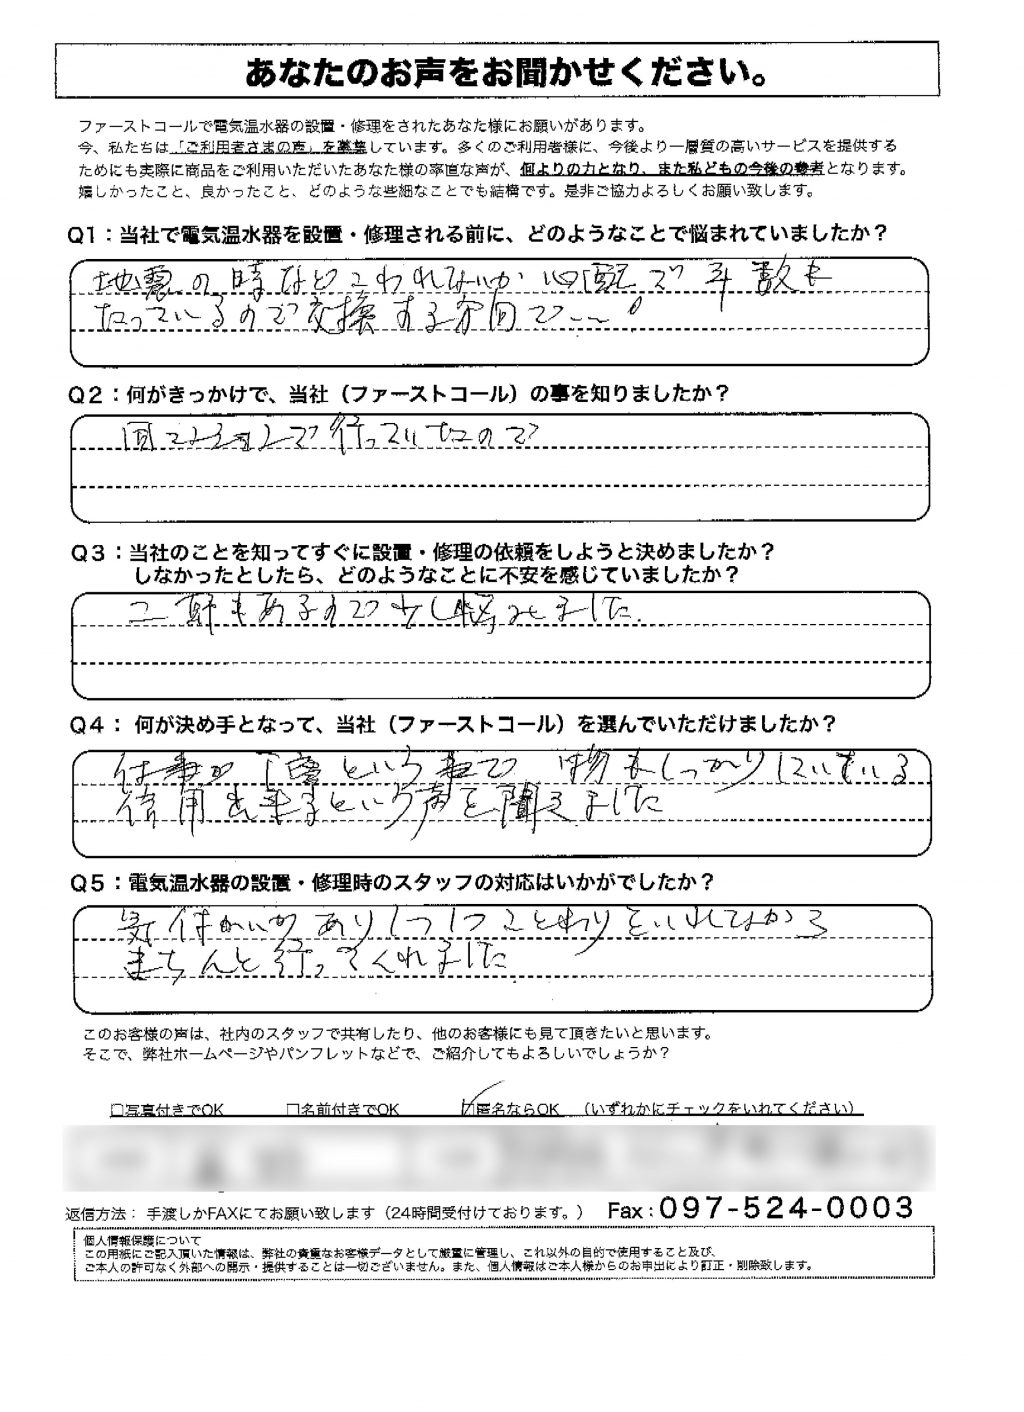 あなたのお声をお聞かせください。
ファーストコールで電気温水器の設置・修理をされたあなた様にお願いがあります。
今、私たちは「ご利用者さまの声」を募集しています。多くのご利用者様に、今後より一層質の高いサービスを提供する
ためにも実際に商品をご利用いただいたあなた様の率直な声が、何よりの力となり、また私どもの今後の参考となります。
嬉しかったこと、良かったこと、どのような些細なことでも結構です。是非ご協力よろしくお願い致します。
Q1：当社で電気温水器を設置・修理される前に、どのようなことで悩まれていましたか？
地震の時などこわれないか心配で年数も
たっているので交換する
Q2：何がきっかけで、当社（ファーストコール）の事を知りましたか？
同マンションで行っていたので
Q3：当社のことを知ってすぐに設置・修理の依頼をしようと決めましたか？
しなかったとしたら、どのようなことに不安を感じていましたか？
二軒もあるので少し悩みました
Q4： 何が決め手となって、当社（ファーストコール）を選んでいただけましたか？
仕事が丁寧という事で 物もしっかりしている
信用出来るという声を聞きました
Q5：電気温水器の設置・修理時のスタッフの対応はいかがでしたか？
気付かいがあり1つ1つことわりをいれてながら
きちんと行ってくれました
このお客様の声は、社内のスタッフで共有したり、他のお客様にも見て頂きたいと思います。
そこで、弊社ホームページやパンフレットなどで、ご紹介してもよろしいでしょうか？
□写真付きでOK □名前付きでOK ☑匿名ならOK （いずれかにチェックをいれてください）
返信方法： 手渡しかFAXにてお願い致します（24時間受付けております。） Fax：097-524-0003
個人情報保護について
この用紙にご記入頂いた情報は、弊社の貴重なお客様データとして厳重に管理し、これ以外の目的で使用すること及び、
ご本人の許可なく外部への開示・提供することは一切ございません。また、個人情報はご本人様からのお申出により訂正・削除致します。